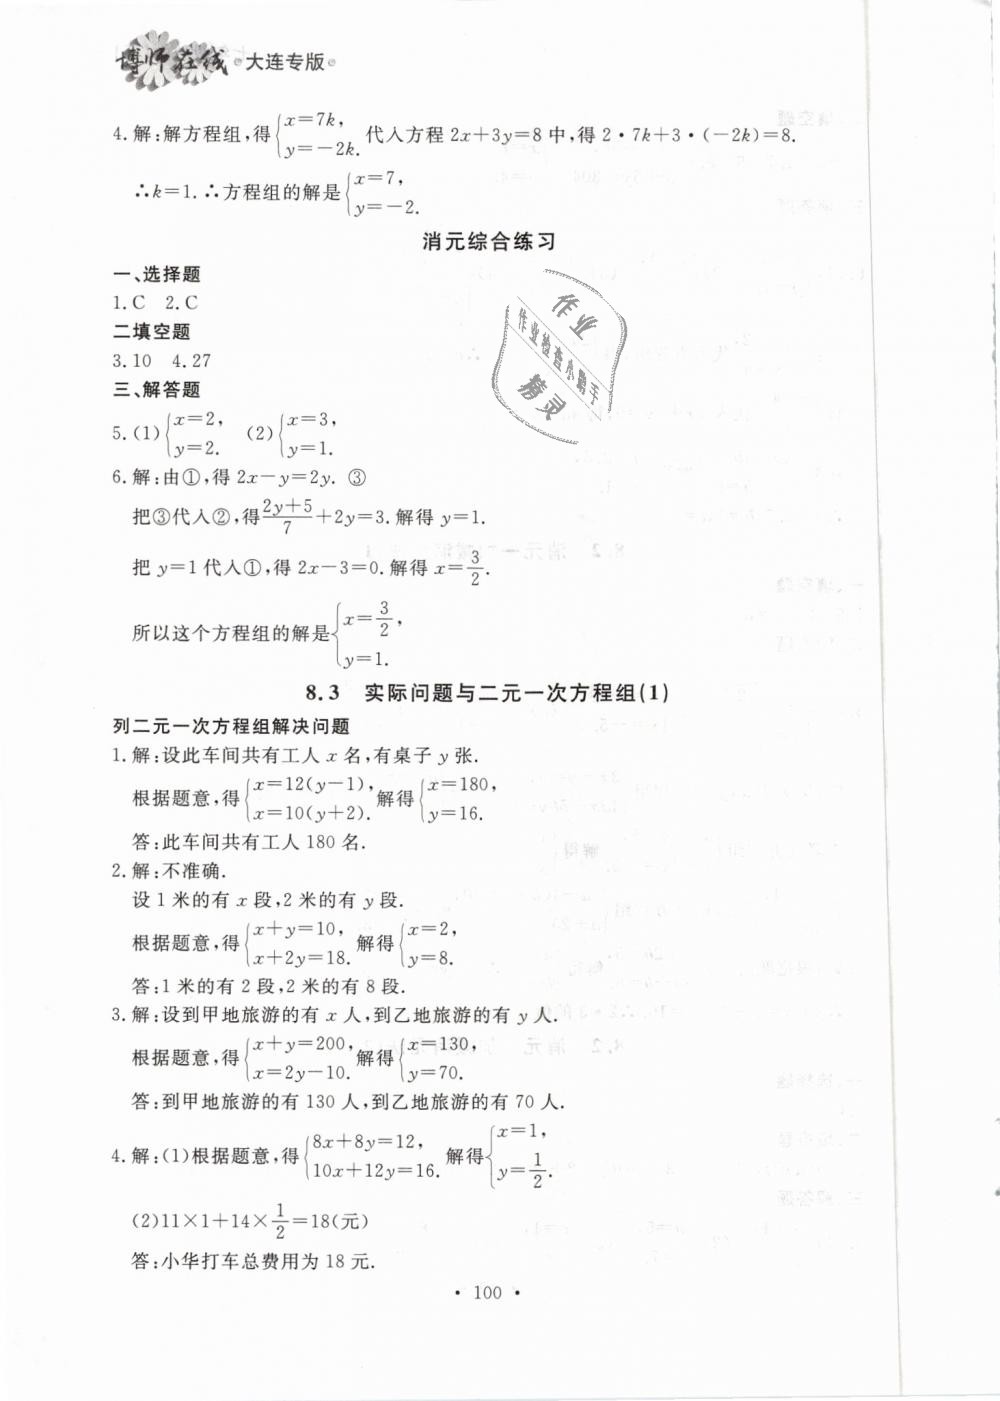 博师在线·大连专版·
4.解:解方程组,得{x=7k, y=-2k. 代入方程 2x+3y=8 中,得 2·7k+3·(-2k)=8.
∴k=1.∴方程组的解是{x=7, y=-2.
消元综合练习
一、选择题
1.C 2.C
二填空题
3.10 4.27
三、解答题
5.(1){x=2, y=2. (2){x=3, y=1.
6.解:由①,得 2x-y=2y. ③
把③代入②,得(2y+5)/7+2y=3.解得 y=1.
把 y=1 代入①,得 2x-3=0.解得 x=3/2.
所以这个方程组的解是{x=3/2, y=1.
8.3 实际问题与二元一次方程组(1)
列二元一次方程组解决问题
1.解:设此车间共有工人 x 名,有桌子 y 张.
根据题意,得{x=12(y-1), x=10(y+2). 解得{x=180, y=16.
答:此车间共有工人 180 名.
2.解:不准确.
设 1 米的有 x 段,2 米的有 y 段.
根据题意,得{x+y=10, x+2y=18. 解得{x=2, y=8.
答:1 米的有 2 段,2 米的有 8 段.
3.解:设到甲地旅游的有 x 人,到乙地旅游的有 y 人.
根据题意,得{x+y=200, x=2y-10. 解得{x=130, y=70.
答:到甲地旅游的有 130 人,到乙地旅游的有 70 人.
4.解:(1)根据题意,得{8x+8y=12, 10x+12y=16. 解得{x=1, y=1/2.
(2)11×1+14×1/2=18(元)
答:小华打车总费用为 18 元.
· 100 ·
作业
作业检查小助手
精灵